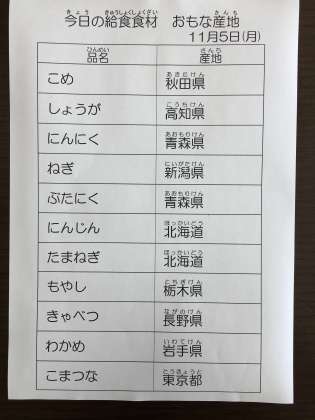 今日の給食食材 おもな産地
11月5日(月)
品名 産地
こめ 秋田県
しょうが 高知県
にんにく 青森県
ねぎ 新潟県
ぶたにく 青森県
にんじん 北海道
たまねぎ 北海道
もやし 栃木県
きゃべつ 長野県
わかめ 岩手県
こまつな 東京都